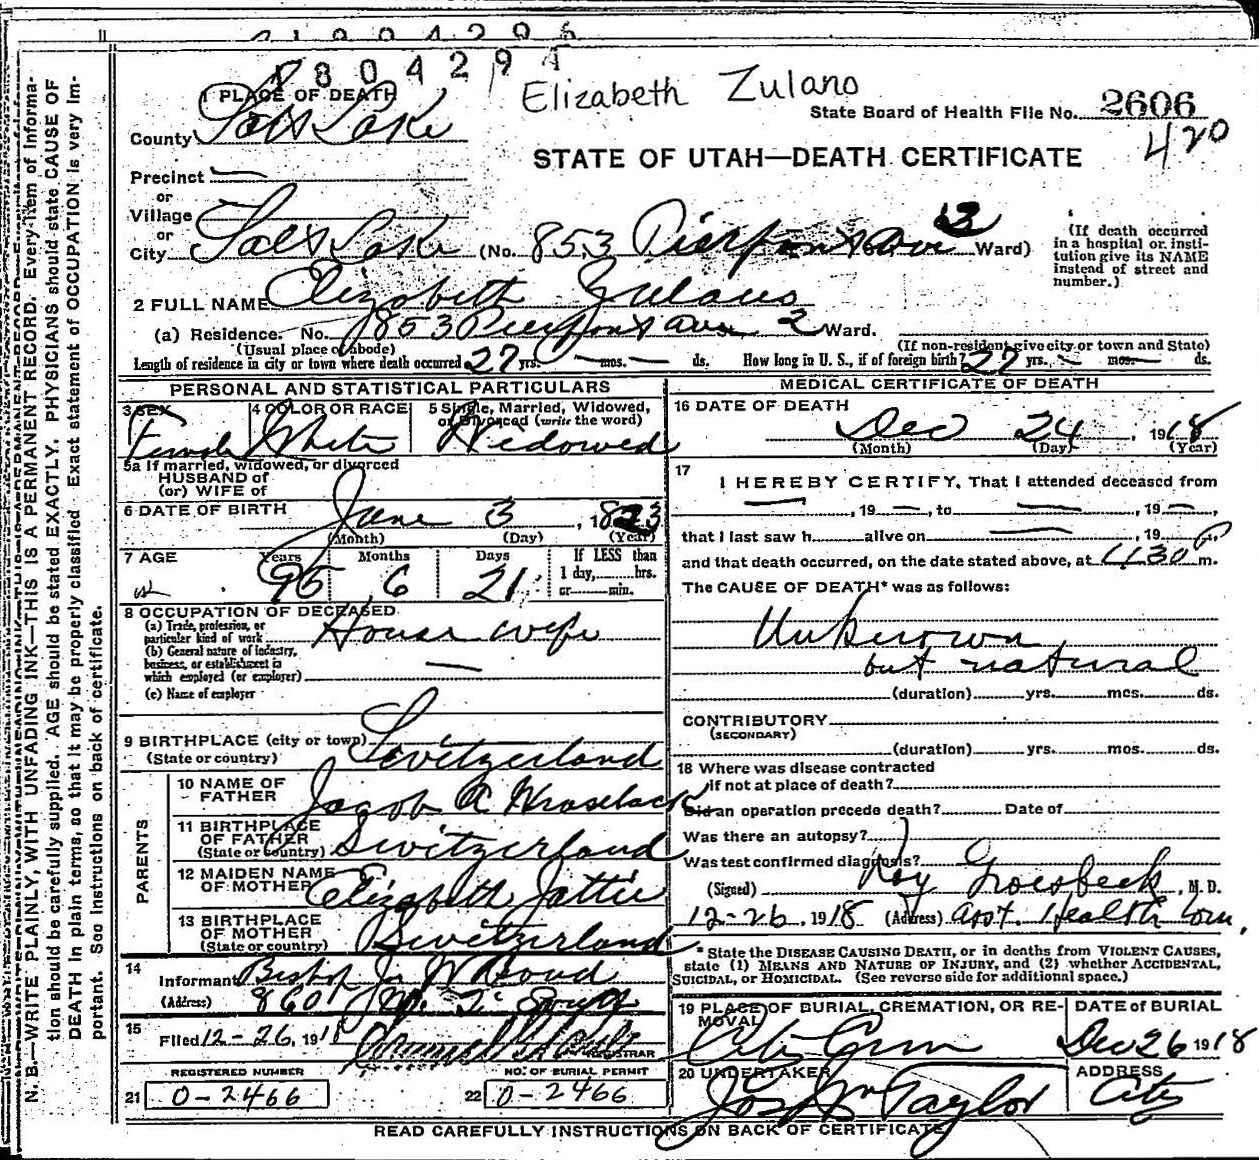 N. B.—WRITE PLAINLY, WITH UNFADING INK—THIS IS A PERMANENT RECORD. Every item of informa-
tion should be carefully supplied. AGE should be stated EXACTLY. PHYSICIANS should state CAUSE OF
DEATH in plain terms, so that it may be properly classified. Exact statement of OCCUPATION is very im-
portant. See instructions on back of certificate.
80429
Elizabeth Zulano
State Board of Health File No. 2606
420
STATE OF UTAH—DEATH CERTIFICATE
1 PLACE OF DEATH
County Salt Lake
Precinct —
or
Village
or
City Salt Lake (No. 853 Pierpont Ave 3 Ward)
(If death occurred
in a hospital or insti-
tution give its NAME
instead of street and
number.)
2 FULL NAME Elizabeth
(a) Residence. No. 853 Pierpont Ave. 2 Ward.
(Usual place of abode) (If non-resident give city or town and State)
Length of residence in city or town where death occurred 27 yrs. — mos. — ds. How long in U. S., if of foreign birth? 27 yrs. — mos. — ds.
PERSONAL AND STATISTICAL PARTICULARS
3 SEX Female
4 COLOR OR RACE White
5 Single, Married, Widowed,
or Divorced (write the word)
Widowed
5a If married, widowed, or divorced
HUSBAND of
(or) WIFE of
6 DATE OF BIRTH June 3, 1823
(Month) (Day) (Year)
7 AGE Years 95 Months 6 Days 21 If LESS than
1 day, hrs.
or min.
8 OCCUPATION OF DECEASED
(a) Trade, profession, or
particular kind of work House wife
(b) General nature of industry,
business, or establishment in
which employed (or employer) —
(c) Name of employer
9 BIRTHPLACE (city or town)
(State or country) Switzerland
PARENTS
10 NAME OF
FATHER Jacob
11 BIRTHPLACE
OF FATHER
(State or country) Switzerland
12 MAIDEN NAME
OF MOTHER Elizabeth
13 BIRTHPLACE
OF MOTHER
(State or country) Switzerland
14
Informant Bishop
(Address) 860
15
Filed 12-26, 1918
REGISTRAR
REGISTERED NUMBER NO. OF BURIAL PERMIT
21 0-2466 22 0-2466
MEDICAL CERTIFICATE OF DEATH
16 DATE OF DEATH
Dec 24, 1918
(Month) (Day) (Year)
17
I HEREBY CERTIFY, That I attended deceased from
—, 19 —, to —, 19 —,
that I last saw h alive on —, 19
and that death occurred, on the date stated above, at 1130 P m.
The CAUSE OF DEATH* was as follows:
Unknown
but natural
(duration) yrs. mos. ds.
CONTRIBUTORY
(SECONDARY)
(duration) yrs. mos. ds.
18 Where was disease contracted
if not at place of death?
Did an operation precede death? Date of
Was there an autopsy?
Was test confirmed diagnosis?
(Signed) Roy Groesbeck, M. D.
12-26, 1918 (Address) Asst. Health Com.
* State the DISEASE CAUSING DEATH, or in deaths from VIOLENT CAUSES,
state (1) MEANS AND NATURE OF INJURY, and (2) whether ACCIDENTAL,
SUICIDAL, or HOMICIDAL. (See reverse side for additional space.)
19 PLACE OF BURIAL, CREMATION, OR RE-
MOVAL
City Cem
DATE of BURIAL
Dec 26 1918
20 UNDERTAKER
Jos Wm Taylor
ADDRESS
City
READ CAREFULLY INSTRUCTIONS ON BACK OF CERTIFICATE